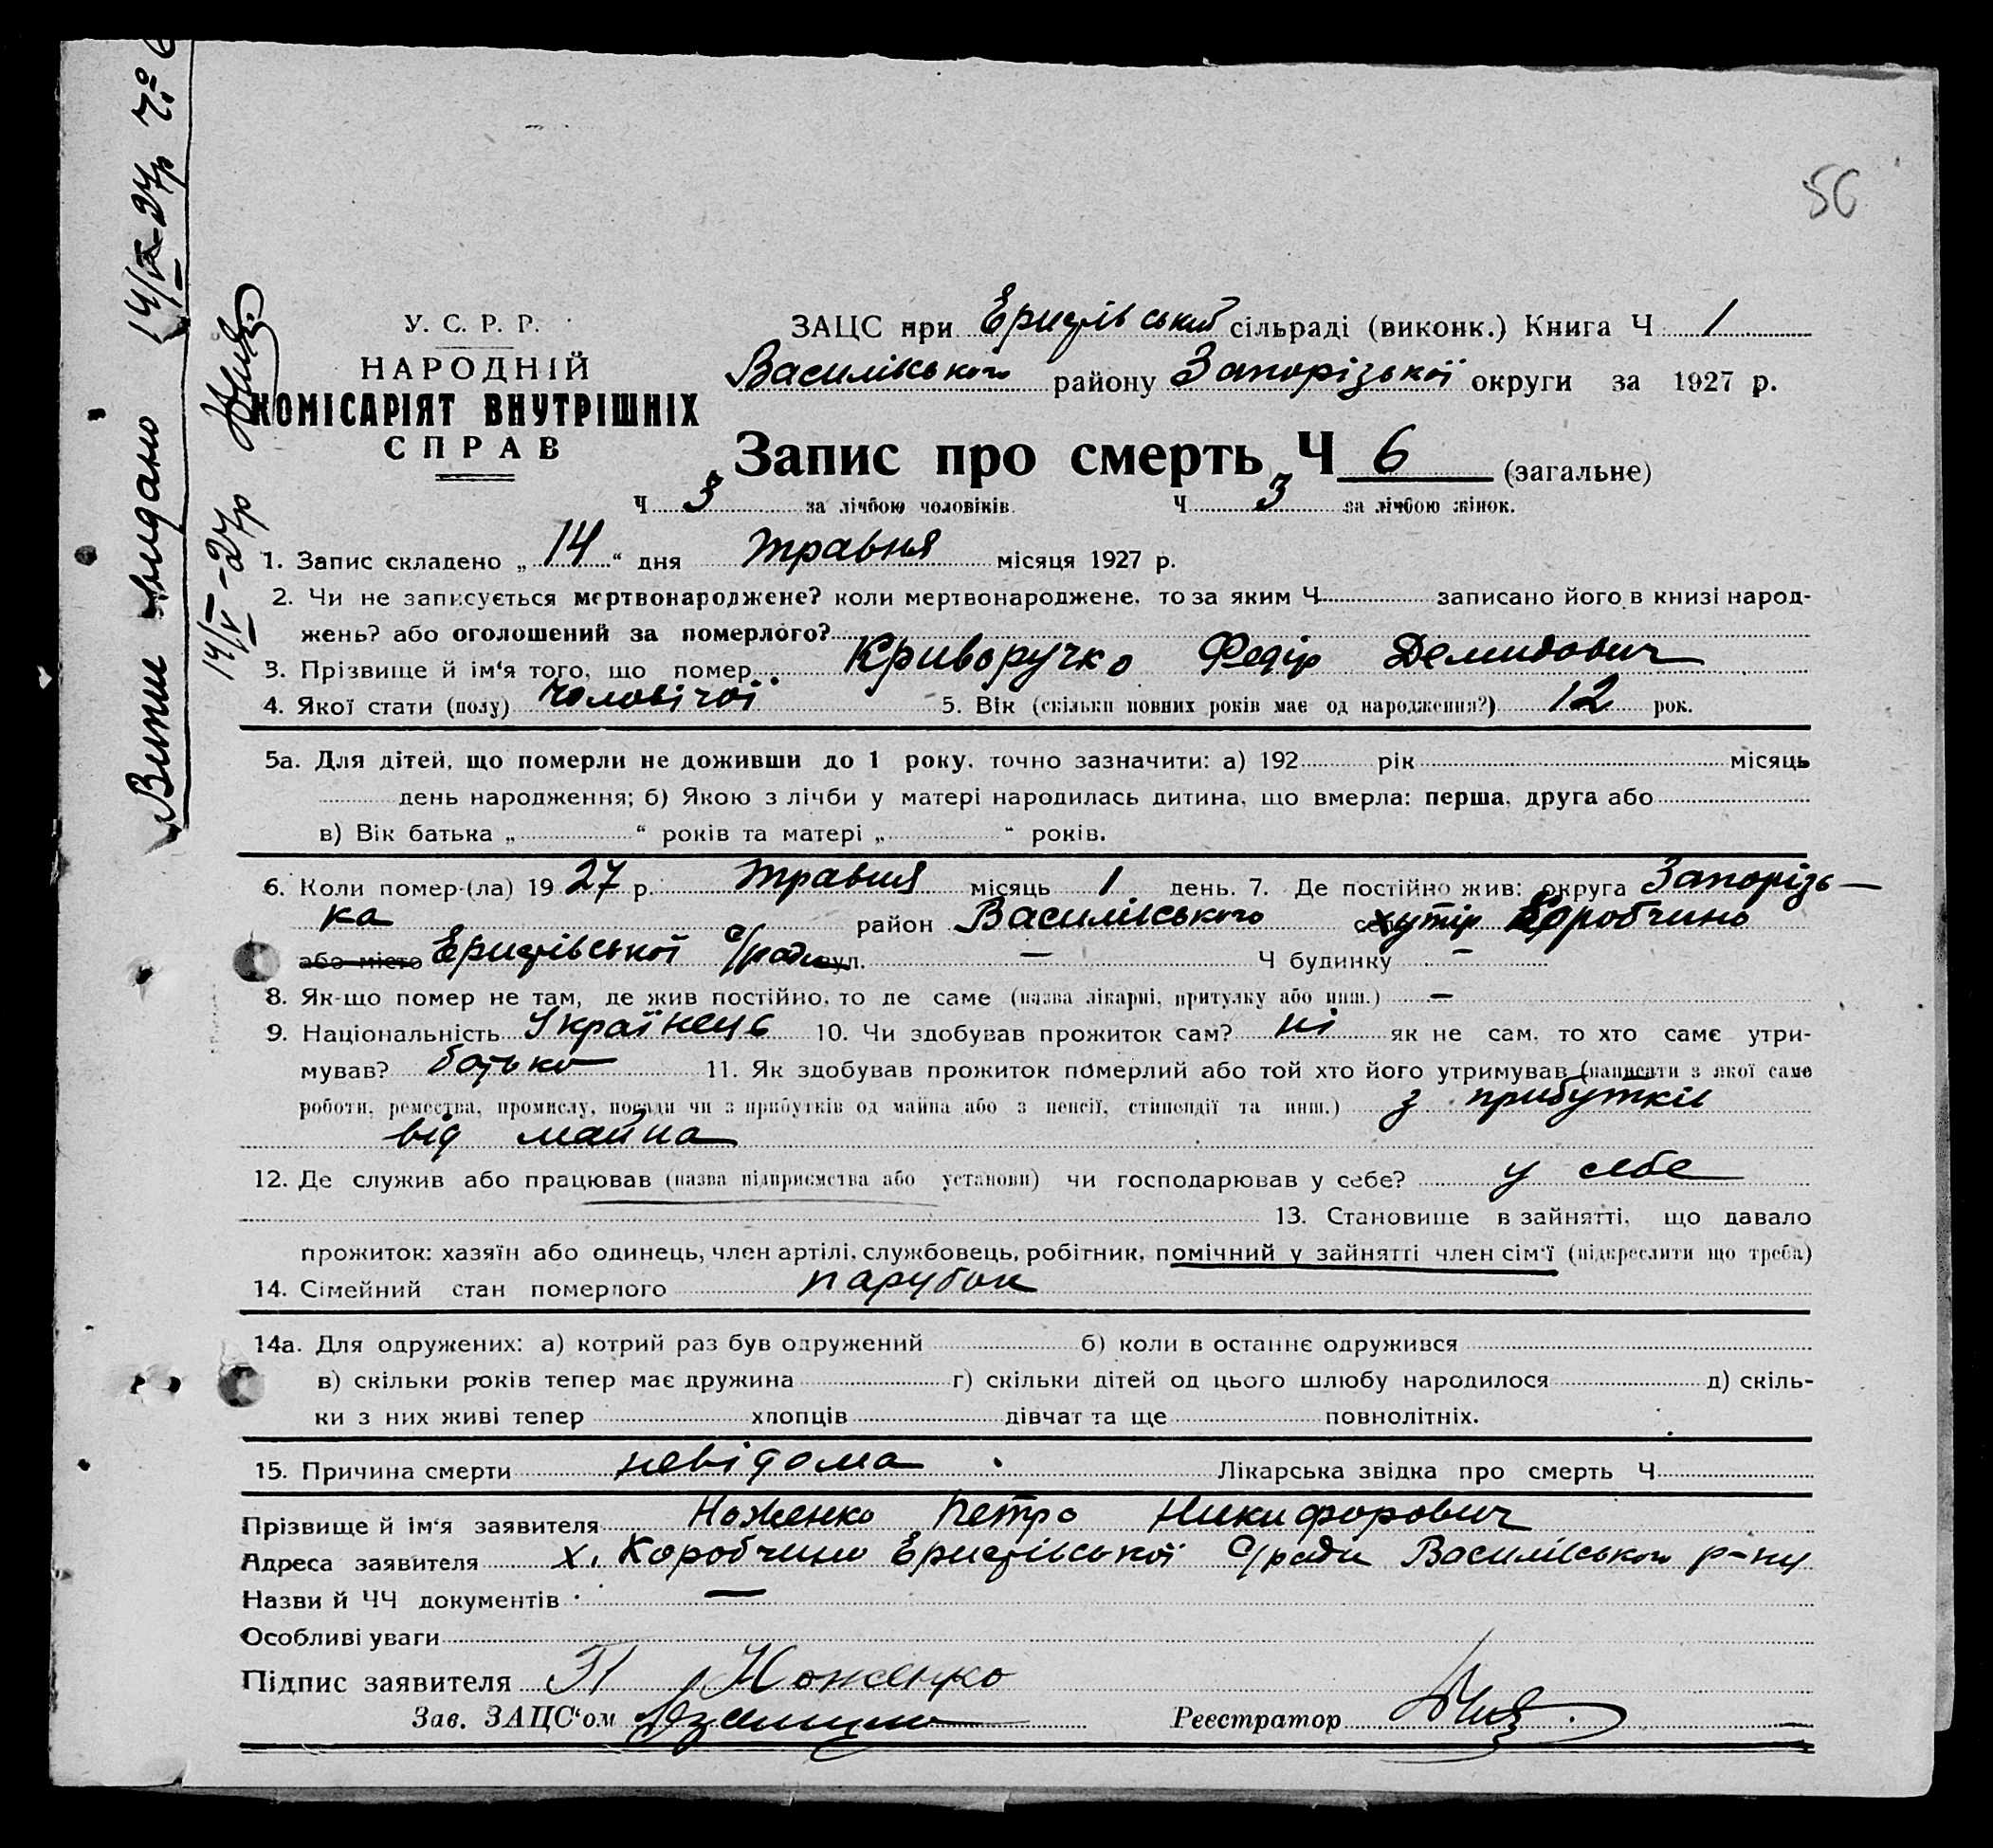 56
Витяг видано 14/V-27р Ч. 6
14/V-27р
У. С. Р. Р.
НАРОДНІЙ
КОМІСАРІЯТ ВНУТРІШНІХ
СПРАВ
ЗАЦС при сільраді (виконк.) Книга Ч 1
Василівського району Запорізької округи за 1927 р.
Запис про смерть Ч 6 (загальне)
Ч 3 за лічбою чоловіків. Ч 3 за лічбою жінок.
1. Запис складено „ 14 “ дня травня місяця 1927 р.
2. Чи не записується мертвонароджене? коли мертвонароджене, то за яким Ч записано його в книзі народ-
жень? або оголошений за померлого?
3. Прізвище й ім‘я того, що помер Криворучко Федір Демидович
4. Якої стати (полу) чоловічої 5. Вік (скільки повних років має од народження?) 12 рок.
5а. Для дітей, що померли не доживши до 1 року, точно зазначити: а) 192 рік місяць
день народження; б) Якою з лічби у матері народилась дитина, що вмерла: перша, друга або
в) Вік батька „ “ років та матері „ “ років.
6. Коли помер-(ла) 19 27 р. травня місяць 1 день. 7. Де постійно жив: округа Запорізь-
ка район Василівського хутір Коробчино
або місто Еристівської с/ради вул. — Ч будинку —
8. Як-що помер не там, де жив постійно, то де саме (назва лікарні, притулку або инш.) —
9. Національність Українець 10. Чи здобував прожиток сам? ні як не сам, то хто саме утри-
мував? батько 11. Як здобував прожиток померлий або той хто його утримував (написати з якої саме
роботи, ремества, промислу, посади чи з прибутків од майна або з пенсії, стипендії та инш.) з прибутків
від майна
12. Де служив або працював (назва підприємства або установи) чи господарював у себе? у себе
13. Становище в зайнятті, що давало
прожиток: хазяїн або одинець, член артілі, службовець, робітник, помічний у зайнятті член сім‘ї (підкреслити що треба)
14. Сімейний стан померлого парубок
14а. Для одружених: а) котрий раз був одружений б) коли в останнє одружився
в) скільки років тепер має дружина г) скільки дітей од цього шлюбу народилося д) скіль-
ки з них живі тепер хлопців дівчат та ще повнолітніх.
15. Причина смерти невідома Лікарська звідка про смерть Ч
Прізвище й ім‘я заявителя Ноженко Петро Никифорович
Адреса заявителя х. Коробчино Еристівської с/ради Василівського р-ну
Назви й ЧЧ документів —
Особливі уваги
Підпис заявителя П Ноженко
Зав. ЗАЦС‘ом
Реєстратор